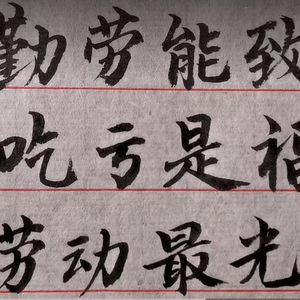 勤劳能致
吃亏是福
劳动最光